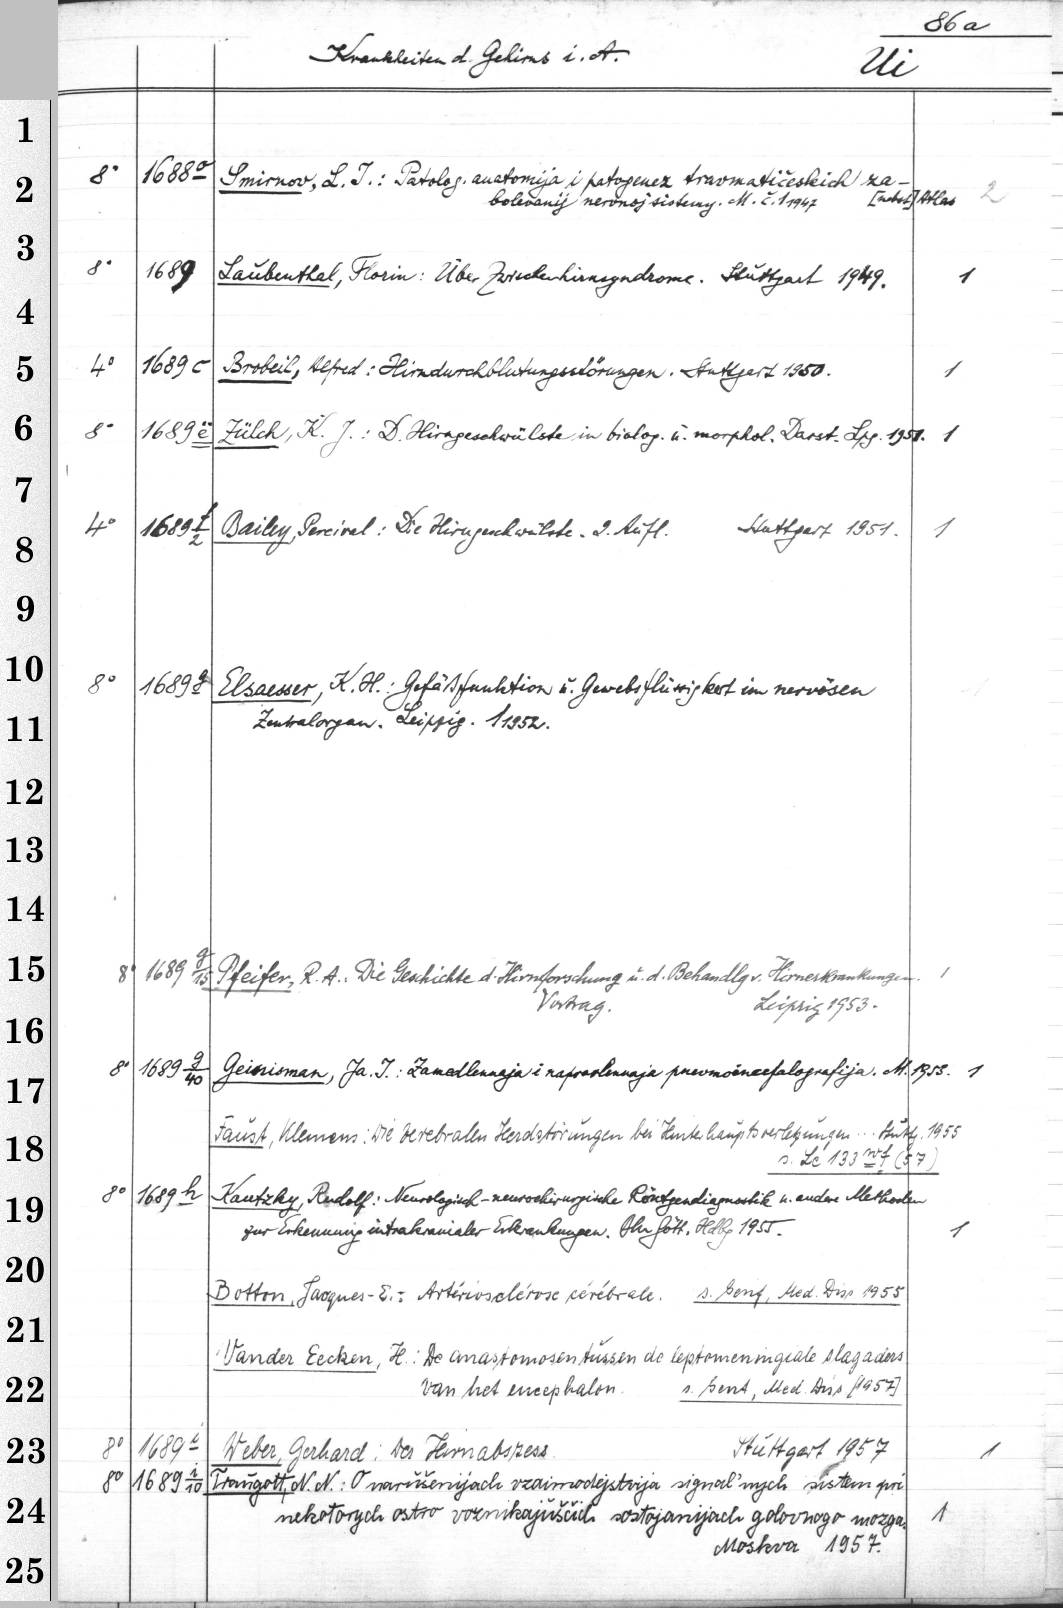 86a
Krankheiten d. Gehirns i. A. Ui
1
2
3
4
5
6
7
8
9
10
11
12
13
14
15
16
17
18
19
20
21
22
23
24
25
8° 1688 o Smirnov, L. I.: Patolog. anatomija i patogenez travmatičeskich za-
bolevanij nervnoj sistemy. M. č. 1 1947 [nebst] Atlas 2
8° 1689 Laubenthal, Florin: Über Zwischenhirnsyndrome. Stuttgart 1949. 1
4° 1689 c Brobeil, Alfred: Hirndurchblutungsstörungen. Stuttgart 1950. 1
8° 1689 e Zülch, K. J.: D. Hirngeschwülste in biolog. u. morphol. Darst. Lpg. 1951. 1
4° 1689 f/2 Bailey, Percival: Die Hirngeschwülste. 2. Aufl. Stuttgart 1951. 1
8° 1689 g Elsaesser, K. H.: Gefäßfunktion u. Gewebsflüssigkeit im nervösen
Zentralorgan. Leipzig. 1952.
8° 1689 g/15 Pfeifer, R. A.: Die Geschichte d. Hirnforschung u. d. Behandlg v. Hirnerkrankungen. 1
Vortrag. Leipzig 1953.
8° 1689 g/40 Geinisman, Ja. I.: Zamedlennaja i napravlennaja pnevmoėncefalografija. M. 1953. 1
Faust, Klemens: Die zerebralen Herdstörungen bei Hinterhauptsverletzungen ... Stuttg. 1955
s. Le 133 wf (57)
8° 1689 h Kautzky, Rudolf: Neurologisch-neurochirurgische Röntgendiagnostik u. andere Methoden
zur Erkennung intrakranialer Erkrankungen. Bln Gött. Hdbg 1955. 1
Botton, Jacques-E.: Artériosclérose cérébrale. s. Genf, Med. Diss 1955
Vander Eecken, H.: De anastomosen tussen de leptomeningiale slagaders
van het encephalon. s. Gent, Med. Diss [1957]
8° 1689 i Weber, Gerhard: Der Hirnabszess Stuttgart 1957 1
8° 1689 i/10 Traugott, N. N.: O narušenijach vzaimodejstvija signal'nych sistem pri
nekotorych ostro voznikajuščich sostojanijach golovnogo mozga. 1
Moskva 1957.